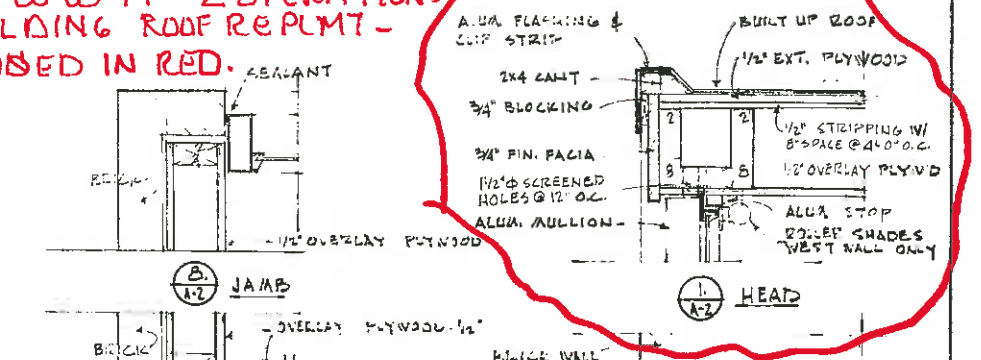 LDING ROOF REPLMT -
SED IN RED.
SEALANT
BRICK
1/2" OVERLAY PLYWOOD
8
A-2
JAMB
OVERLAY PLYWOOD - 1/2"
BRICK
ALUM. FLASHING &
CLIP STRIP
2X4 CANT
3/4" BLOCKING
3/4" FIN. FACIA
1 1/2" Φ SCREENED
HOLES @ 12" O.C.
ALUM. MULLION
BUILT UP ROOF
1/2" EXT. PLYWOOD
1/2" STRIPPING W/
8" SPACE @ 4'-0" O.C.
1/2" OVERLAY PLYW'D
ALUM STOP
ROLLER SHADES
WEST WALL ONLY
2
2
8
8
1
A-2
HEAD
WALL